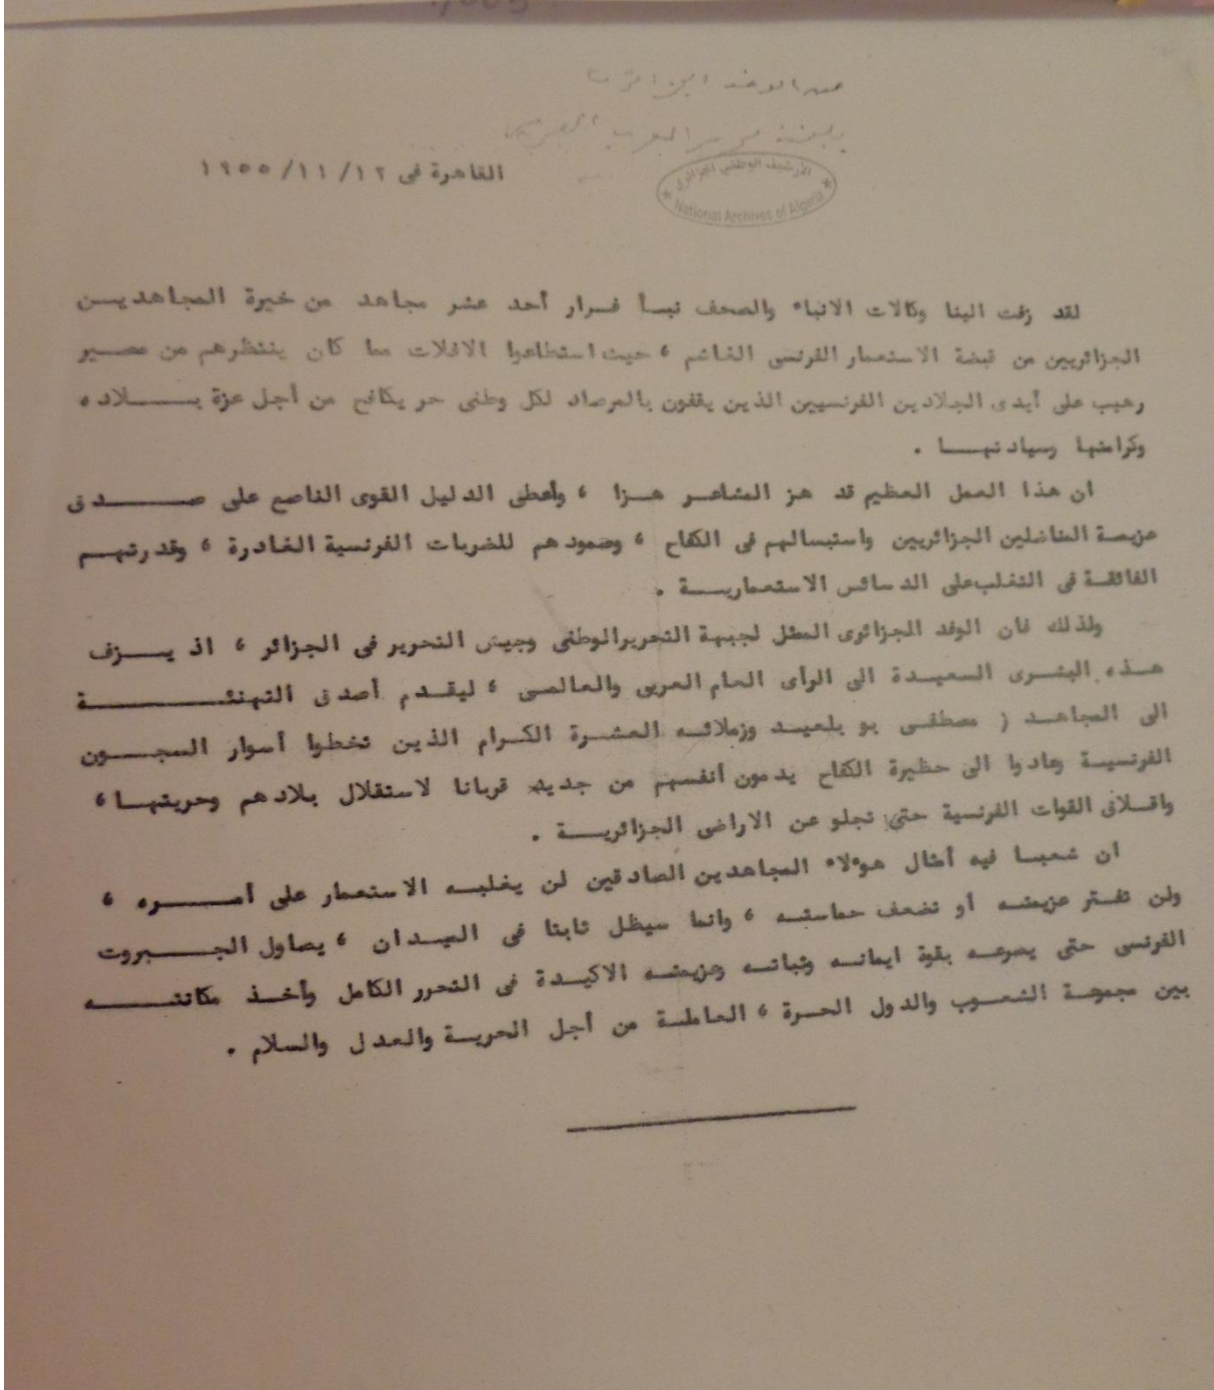 من الوفد الجزائري
بلجنة تحرير المغرب العربي
القاهرة فى ١٢/١١/١٩٥٥
الأرشيف الوطني الجزائري
National Archives of Algeria
لقد زفت الينا وكالات الانباء والصحف نبـأ فـرار أحد عشر مجاهد من خيرة المجاهديـن
الجزائريين من قبضة الاستعمار الفرنسى الغاشم ، حيث استطاعوا الافلات مما كان ينتظرهم من مصـير
رهيب على أيدى الجلادين الفرنسيين الذين يقفون بالمرصاد لكل وطنى حر يكافح من أجل عزة بـــلاده
وكرامتها وسيادتهـا .
ان هذا العمل العظيم قد هز المشاعـر هـزا ، وأعطى الدليل القوى الناصع على صـــدق
عزيمـة المناضلين الجزائريين واستبسالهم فى الكفاح ، وصمودهم للضربات الفرنسية الغادرة ، وقدرتهـم
الفائقـة فى التغلب على الدسائس الاستعماريـة .
ولذلك فان الوفد الجزائرى الممثل لجبهة التحرير الوطنى وجيش التحرير فى الجزائر ، اذ يـزف
هـذه البشـرى السعيـدة الى الرأى العام العربى والعالمـى ، ليقـدم أصدق التهنئـــــة
الى المجاهـد ز مصطفـى بو بلعيـد وزملائـه العشـرة الكـرام الذيـن تخطـوا أسوار السجـون
الفرنسيـة وعادوا الى حظيرة الكفاح يدمون أنفسهم من جديد قربانا لاستقلال بـلادهم وحريتهـا ،
واقـلاق القوات الفرنسية حتى تجلو عن الاراضى الجزائريـة .
ان شعبـا فيه أمثال هوءلاء المجاهدين الصادقين لن يغلبـه الاستعمار على أمـــره ،
ولن تفـتر عزيمتـه أو تضعف حماستـه ، وانما سيظل ثابتا فى الميـدان ، يصاول الجـــبروت
الفرنسى حتى يصرعـه بقوة ايمانـه وثباتـه وعزيمتـه الاكيـدة فى التحرر الكامل وأخـذ مكانتـــه
بين مجموعـة الشعـوب والدول الحـرة ، العاملـة من أجل الحريـة والعـدل والسلام .